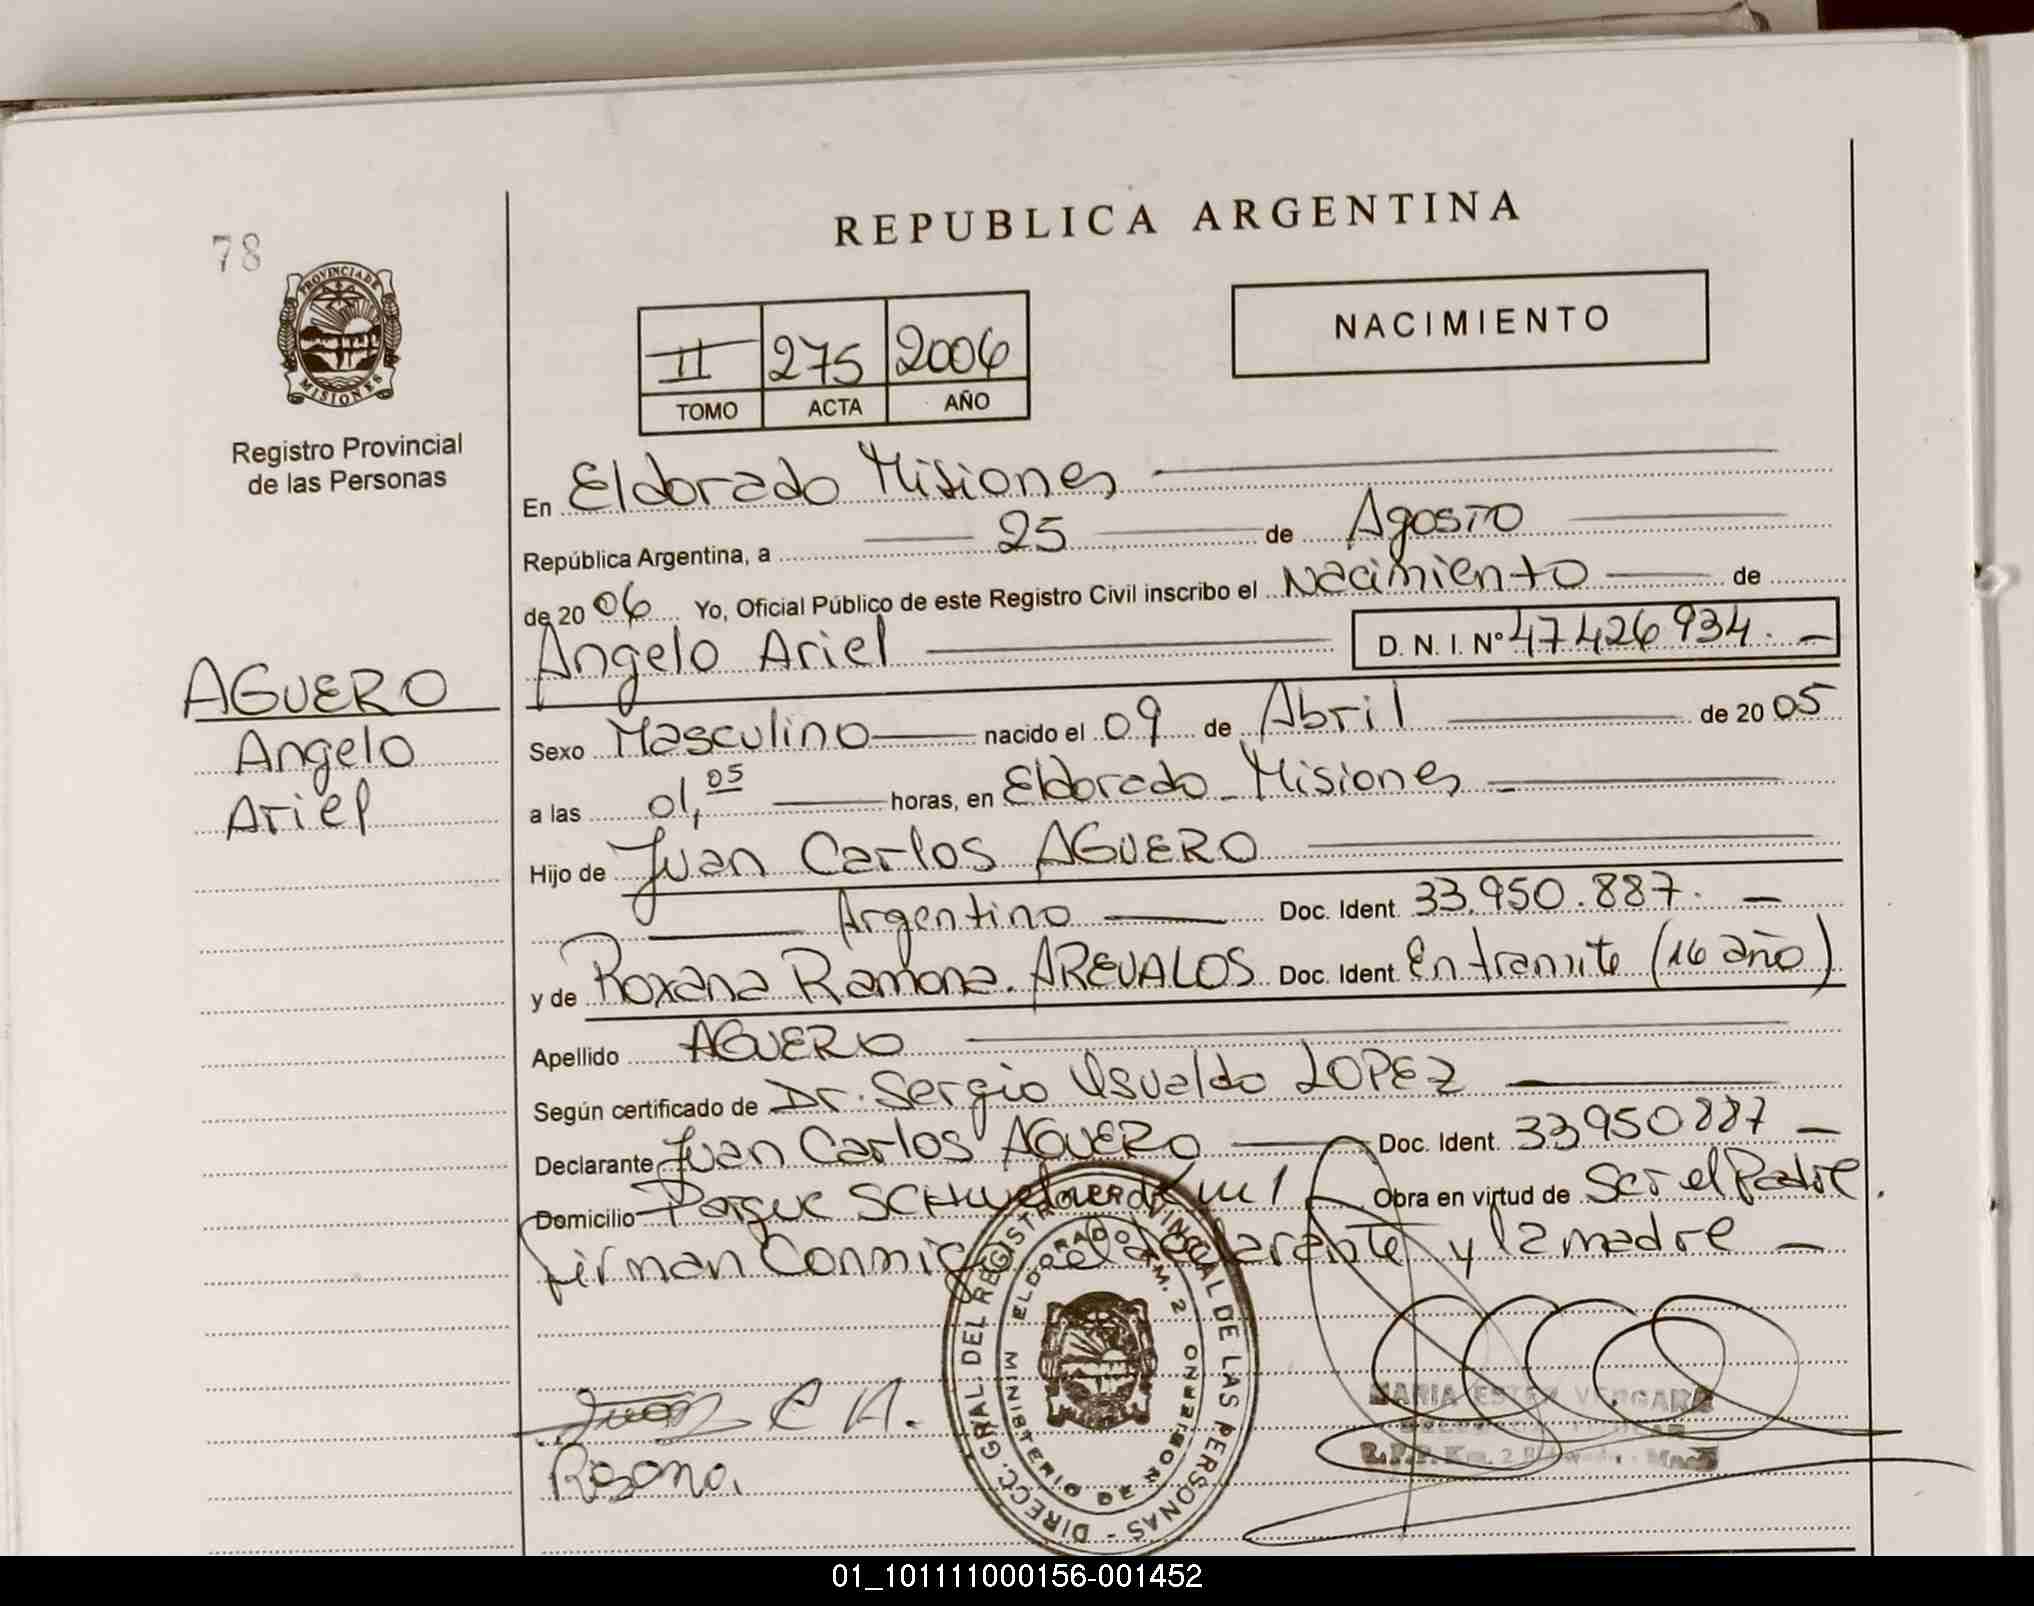 78
PROVINCIA DE
MISIONES
Registro Provincial
de las Personas
AGUERO
Angelo
Ariel
REPUBLICA ARGENTINA
NACIMIENTO
II 275 2006
TOMO ACTA AÑO
En Eldorado Misiones
República Argentina, a 25 de Agosto
de 2006 Yo, Oficial Público de este Registro Civil inscribo el Nacimiento de
Angelo Ariel D. N. I. N° 47426934.
Sexo Masculino nacido el 09 de Abril de 2005
a las 01,05 horas, en Eldorado Misiones
Hijo de Juan Carlos AGUERO
Argentino Doc. Ident. 33.950.887.
y de Roxana Ramona. AREVALOS Doc. Ident. En tramite (16 año)
Apellido AGUERO
Según certificado de Dr. Sergio Osvaldo LOPEZ
Declarante Juan Carlos AGUERO Doc. Ident. 33950887
Domicilio Parque Km 1 Obra en virtud de Ser el Padre.
firman Conmigo el declarante y la madre
DIRECC. GRAL. DEL REGISTRO PROVINCIAL DE LAS PERSONAS -
ELDORADO KM. 2
MINISTERIO DE GOBIERNO
Juan C A.
MARIA ESTER VERGARA
R.P.P. Km. 2 Eldorado - Mnes
01_101111000156-001452